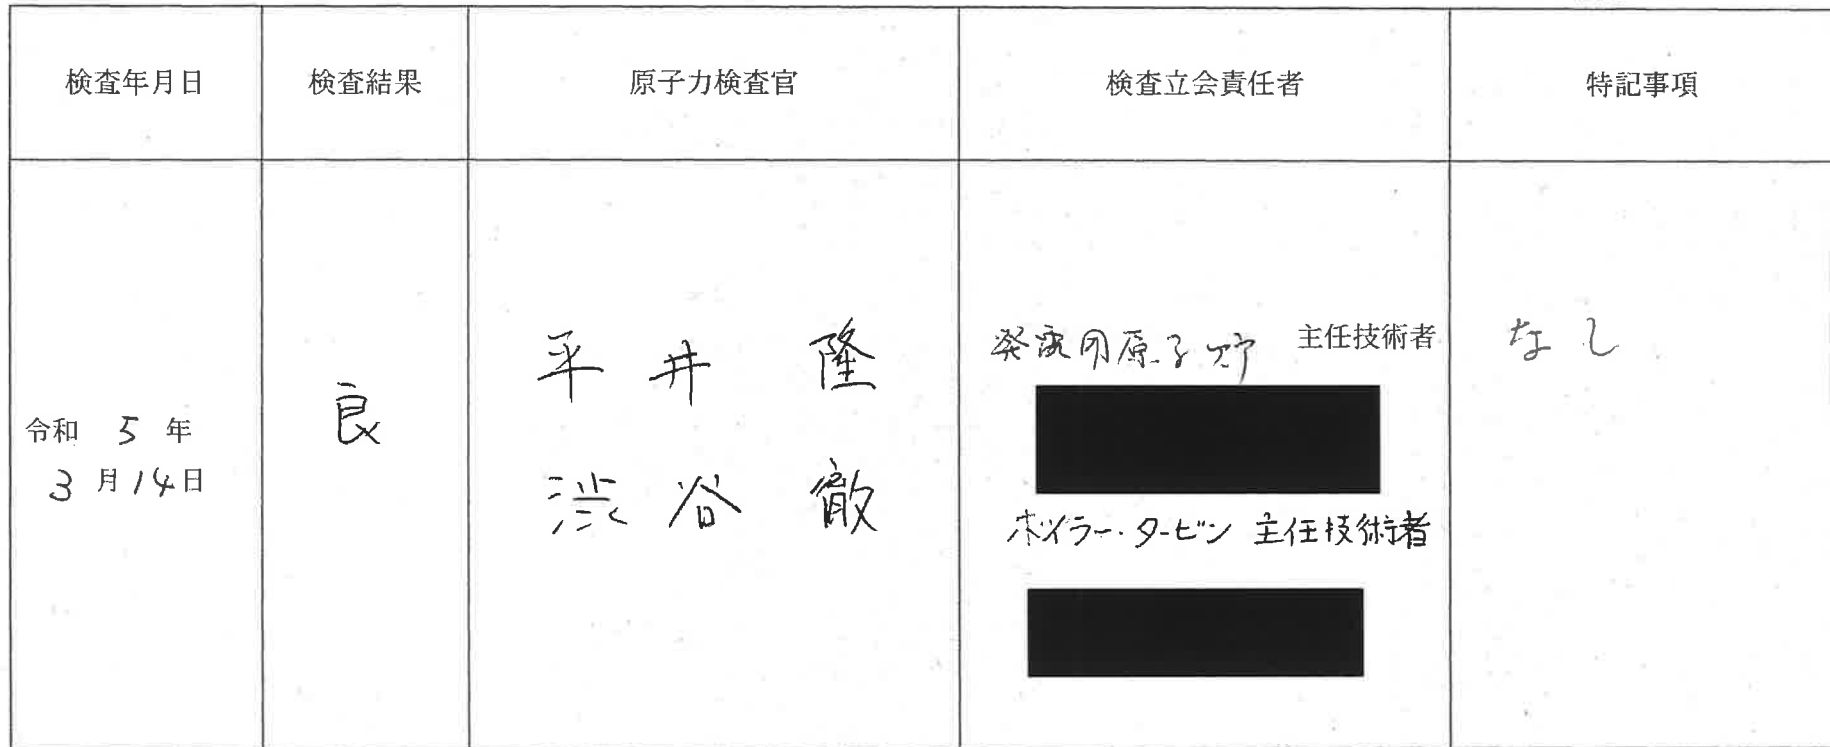 検査年月日 検査結果 原子力検査官 検査立会責任者 特記事項
令和 5 年
3 月 14 日
良
平井 隆
渋谷 徹
発電用原子炉 主任技術者
ボイラー・タービン 主任技術者
なし